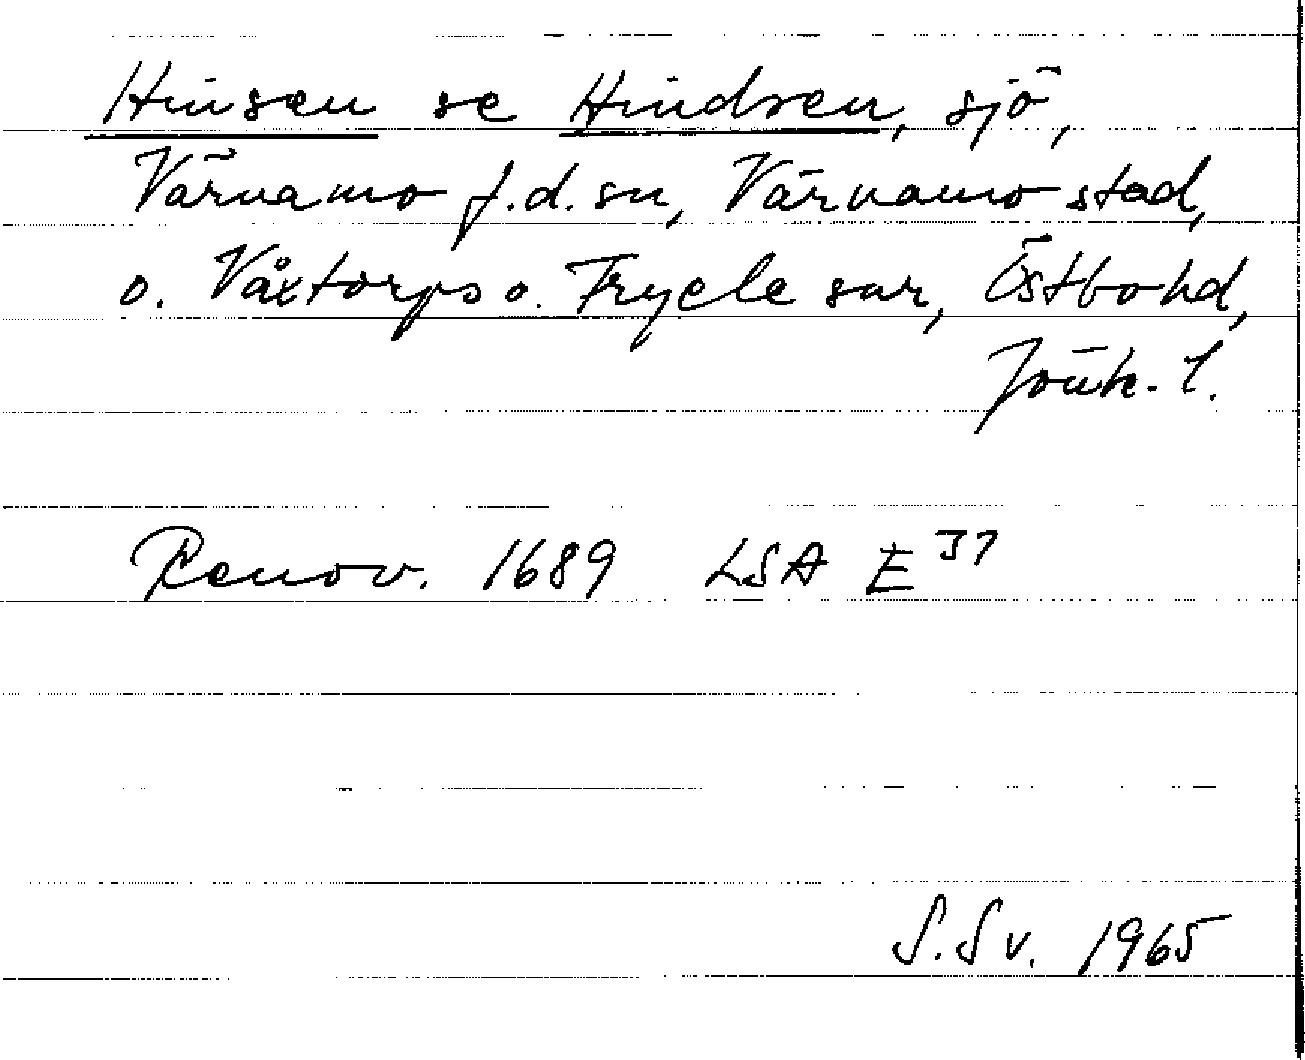 Hinsen se Hindsen, sjö,
Värnamo f.d. sn, Värnamo stad,
o. Våxtorps o. Tryele snr, Östbo hd,
Jönk. l.
Renov. 1689 LSA E 37
S.Sv. 1965